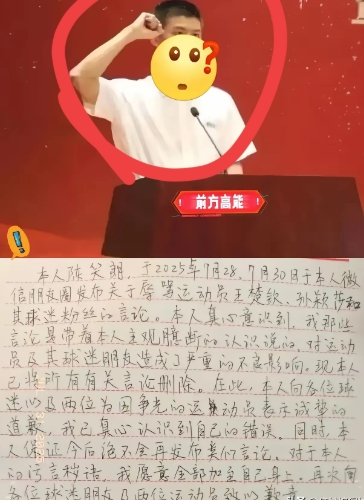 前方高能
本人陈笑朗,于2025年7月28,7月30日于本人微
信朋友圈发布关于辱骂运动员王楚钦、孙颖莎和
其球迷粉丝的言论。本人真心意识到,我那些
言论是带着本人主观臆断的认识说的,对运动
员及其球迷朋友造成了严重的不良影响,现本人
已将所有有关言论删除。在此,本人向各位球
迷以及两位为国争光的运动员表示诚挚的
道歉,我已真心认识到自己的错误。同时,本
人保证今后绝不会再发布类似言论。对于本人
的污言秽语,我愿意全部加至自己身上,再次向
各位球迷朋友及两位运动员致以歉意